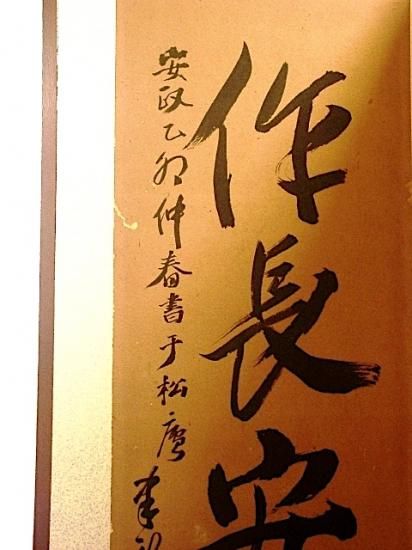 作長安
安政乙卯仲春書于松庵